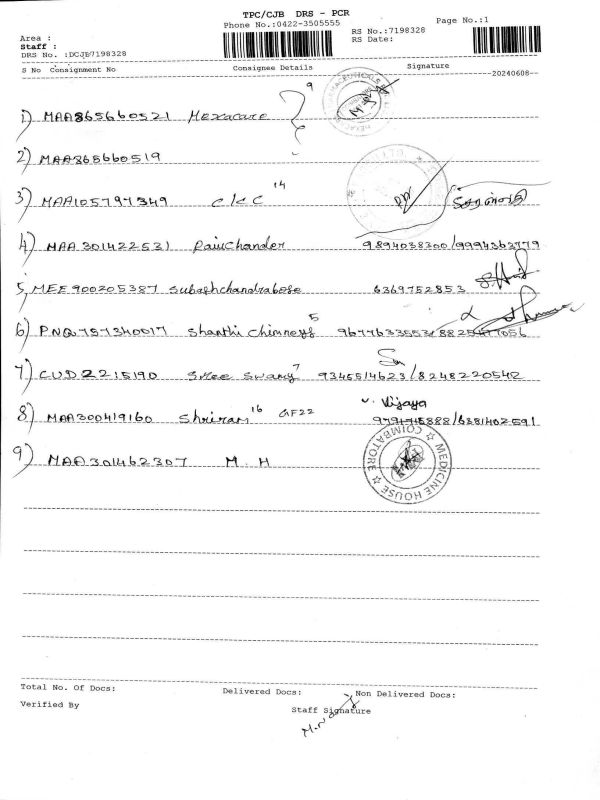 TPC/CJB DRS - PCR
Phone No.:0422-3505555 Page No.:1
Area : RS No.:7198328
Staff : RS Date:
DRS No. :DCJB7198328
S No Consignment No Consignee Details Signature
20240608
1) MAA865660521 Mexacare 9
2) MAA865660519
3) MAA105797349 CKC 14
4) MAA301422531 Ravichander 9894038300/9994363779
5) MEE900205387 Subashchandrabose 6369752853
6) PNQ757340017 Shanthi 5 9677633553/
7) CUD2215190 Sree Swamy 7 9345514623/8248220542
8) MAA300419160 Shriram 16 GF22 V. Vijaya
/6381402591
9) MAA301462307 M.H
MEDICINE HOUSE ☆ COIMBATORE ☆
Total No. Of Docs: Delivered Docs: Non Delivered Docs:
Verified By Staff Signature